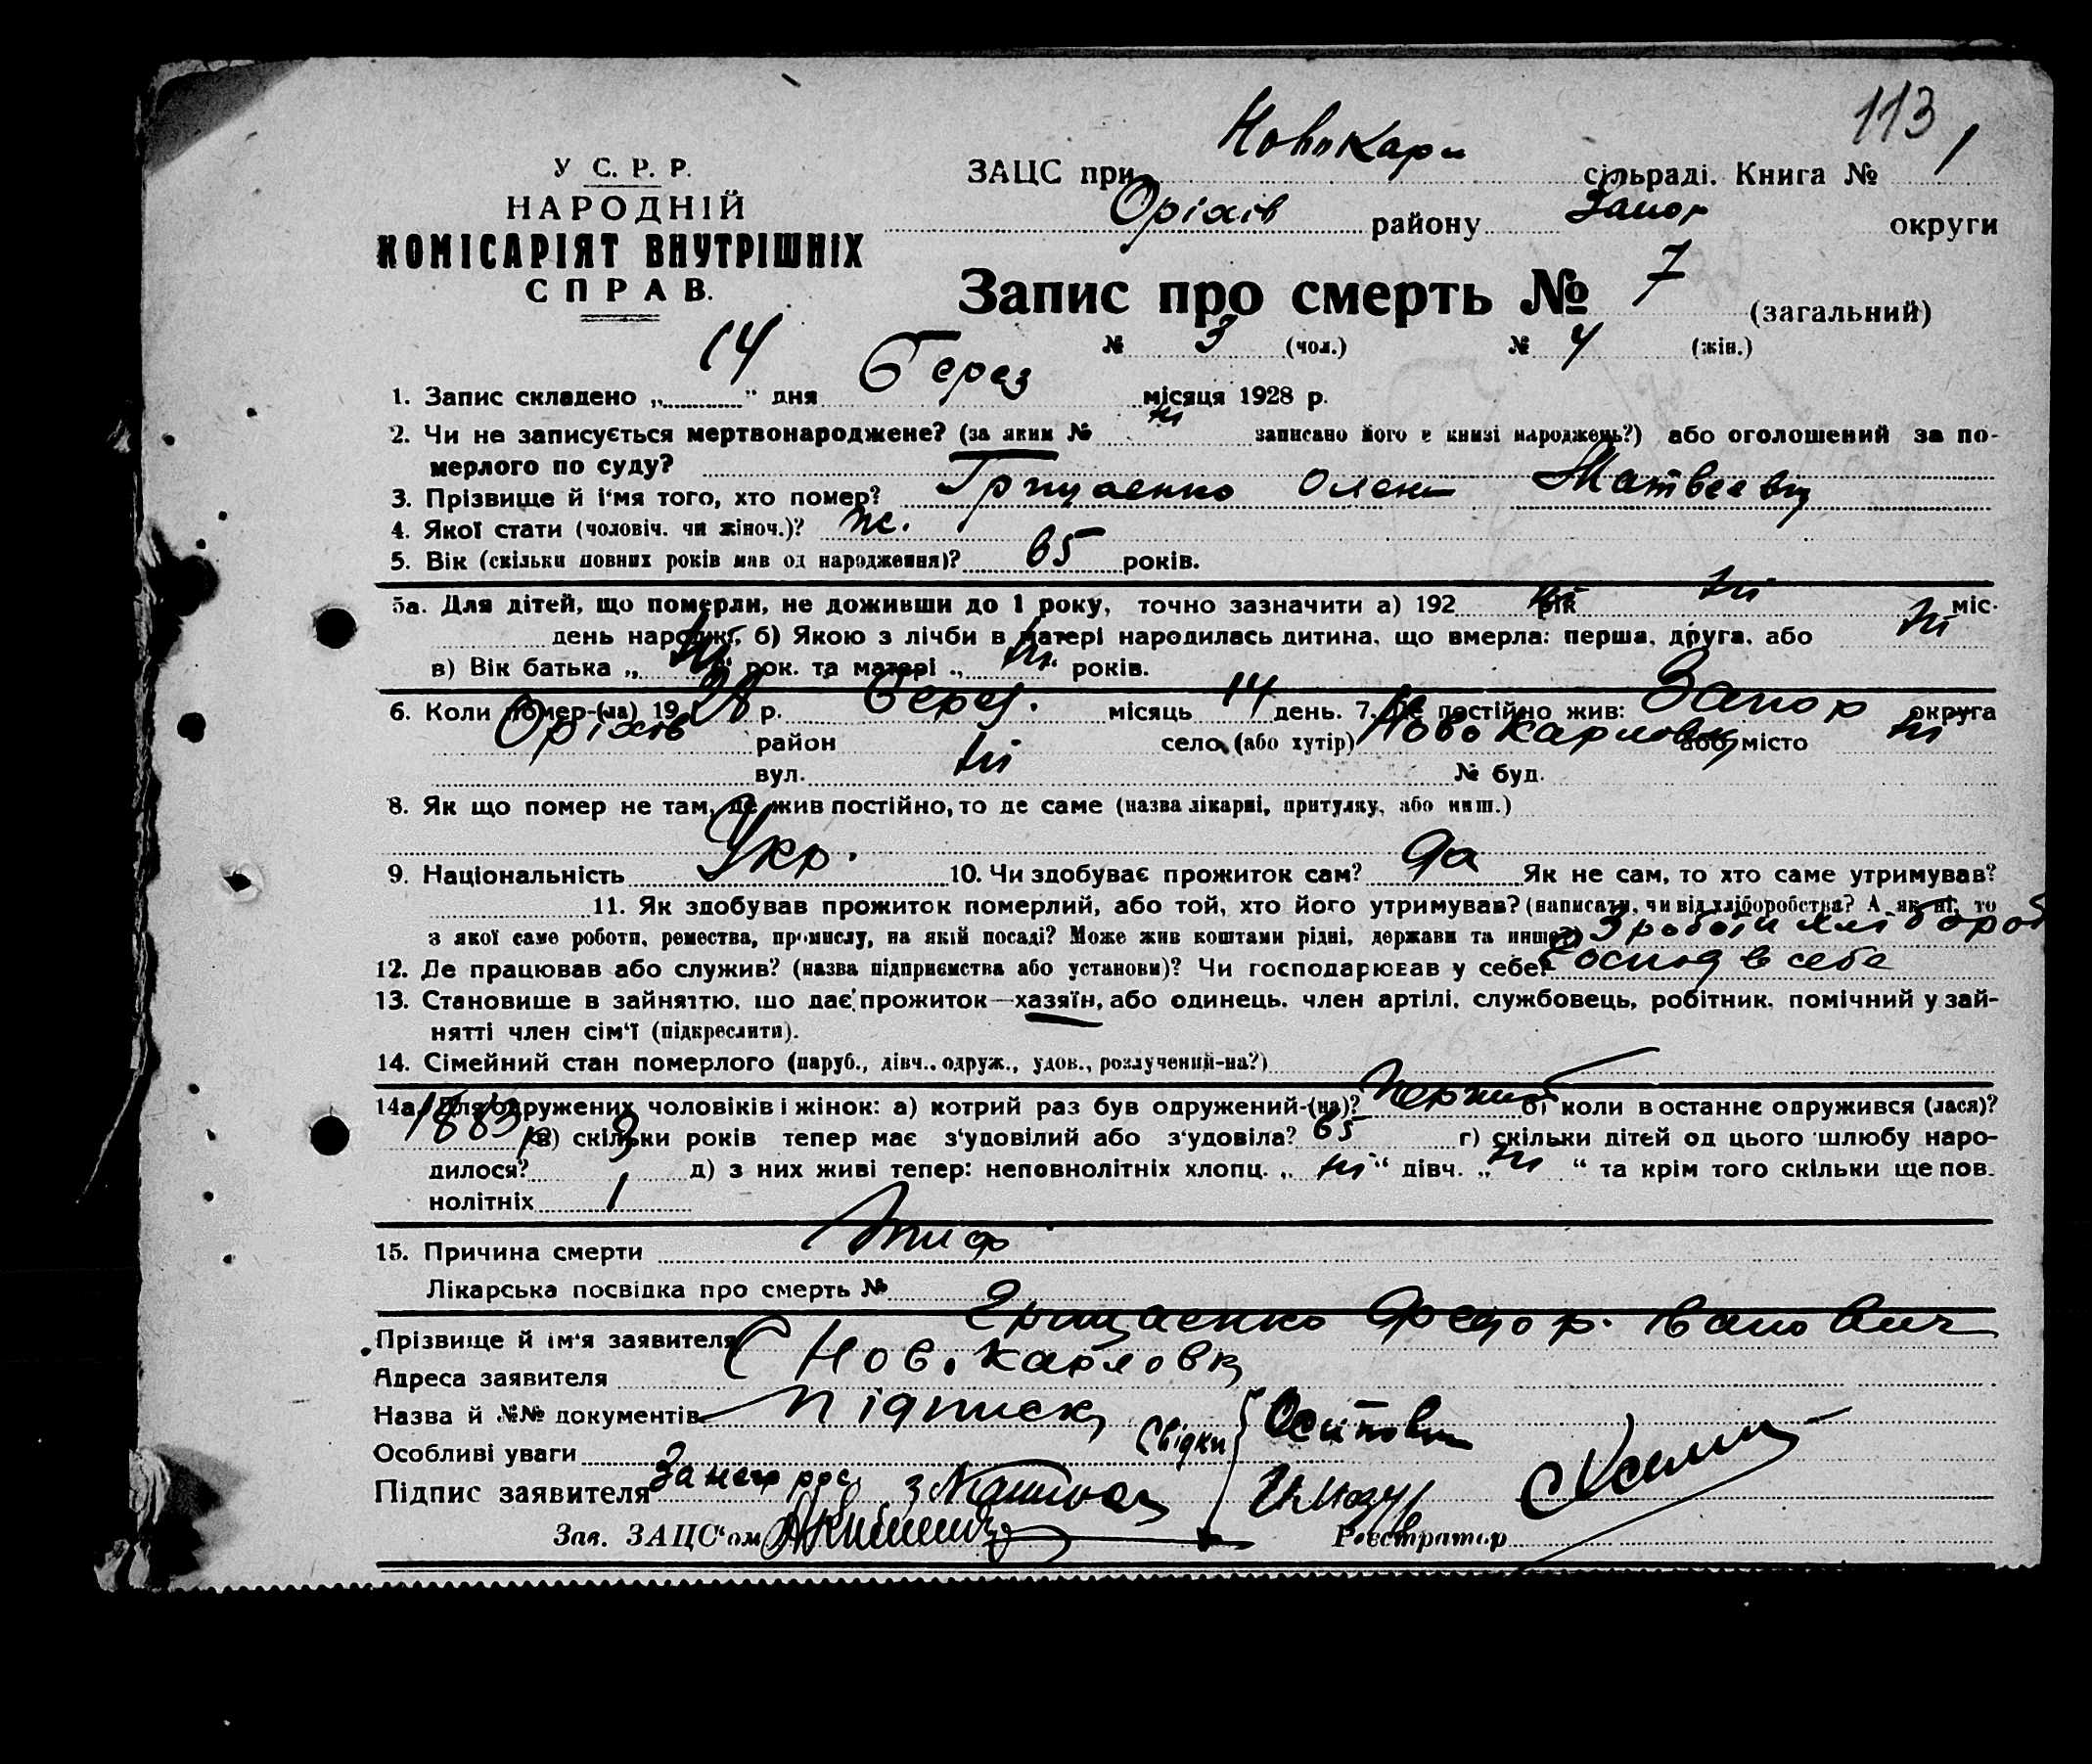 113
У С. Р. Р.
НАРОДНІЙ
КОМІСАРІЯТ ВНУТРІШНІХ
СПРАВ.
ЗАЦС при Новокарл сільраді. Книга № 1
Оріхів району Запор округи
Запис про смерть № 7 (загальний)
№ 3 (чол.) № 4 (жін.)
1. Запис складено „ 14 " дня Берез місяця 1928 р.
2. Чи не записується мертвонароджене? (за яким № ні записано його в книзі народжень?) або оголошений за по-
мерлого по суду?
3. Прізвище й і'мя того, хто помер? Грицаенко Олена Матвеевн
4. Якої стати (чоловіч. чи жіноч.)? ж.
5. Вік (скільки повних років мав од народження)? 65 років.
5а. Для дітей, що померли, не доживши до 1 року, точно зазначити а) 192 ні рік ні міс.
день народж., б) Якою з лічби в матері народилась дитина, що вмерла: перша, друга, або ні
в) Вік батька „ ні " рок. та матері „ ні " років.
6. Коли помер-(ла) 1928 р. Берез. місяць 14 день. 7. Де постійно жив: Запор округа
Оріхів район ні село, (або хутір) Новокарловц або місто ні
вул. № буд.
8. Як що помер не там, де жив постійно, то де саме (назва лікарні, притулку, або инш.)
9. Національність Укр. 10. Чи здобуває прожиток сам? да Як не сам, то хто саме утримував?
11. Як здобував прожиток померлий, або той, хто його утримував? (написати, чи від хліборобства? А як ні, то
з якої саме роботи, ремества, промислу, на якій посаді? Може жив коштами рідні, держави та инше?) З роботи хлібороб
12. Де працював або служив? (назва підприємства або установи)? Чи господарював у себе? Господ в себе
13. Становище в зайняттю, що дає прожиток—хазяїн, або одинець, член артілі, службовець, робітник, помічний у зай-
нятті член сім'ї (підкреслити).
14. Сімейний стан померлого (паруб., дівч., одруж., удов., розлучений-на?)
14а. Для одружених чоловіків і жінок: а) котрий раз був одружений-(на)? Перший б) коли в останнє одружився (лася)?
1883 р в) скільки років тепер має з'удовілий або з'удовіла? 65 г) скільки дітей од цього шлюбу наро-
дилося? 3 д) з них живі тепер: неповнолітніх хлопц. „ ні " дівч. „ ні " та крім того скільки ще пов.
нолітніх 1
15. Причина смерти Тиф
Лікарська посвідка про смерть №
Прізвище й ім'я заявителя Грищаенко Федор. Іванович
Адреса заявителя С Нов. Карловц
Назва й №№ документів Підписк
Особливі уваги Свідки
Підпис заявителя За негр
Зав. ЗАЦС'ом Реєстратор